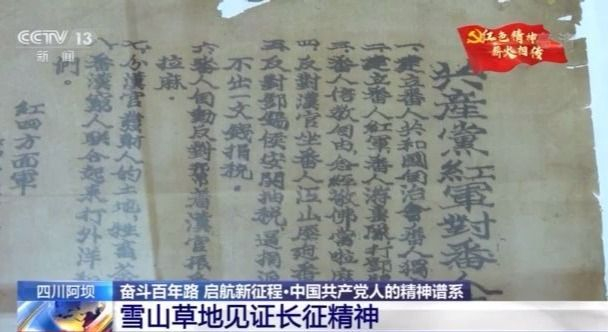 CCTV 13
新闻
红色精神
薪火相传
共產黨紅軍對番人
一、建立番人共和國自治會番人獨
二、建立番人紅軍番人游擊隊打
三、番人信教自由，念經敬佛當
四、反對漢官坐番人江山壓迫番
五、反對鄧錫侯安關抽稅，還
不出一文錢捐稅。
六、番人自動反對幫着漢官
拉麻。
七、分漢官發財人的土地，牲畜
八、番漢窮人聯合起來打外洋
們。
紅四方面軍
四川阿坝
奋斗百年路 启航新征程·中国共产党人的精神谱系
雪山草地见证长征精神